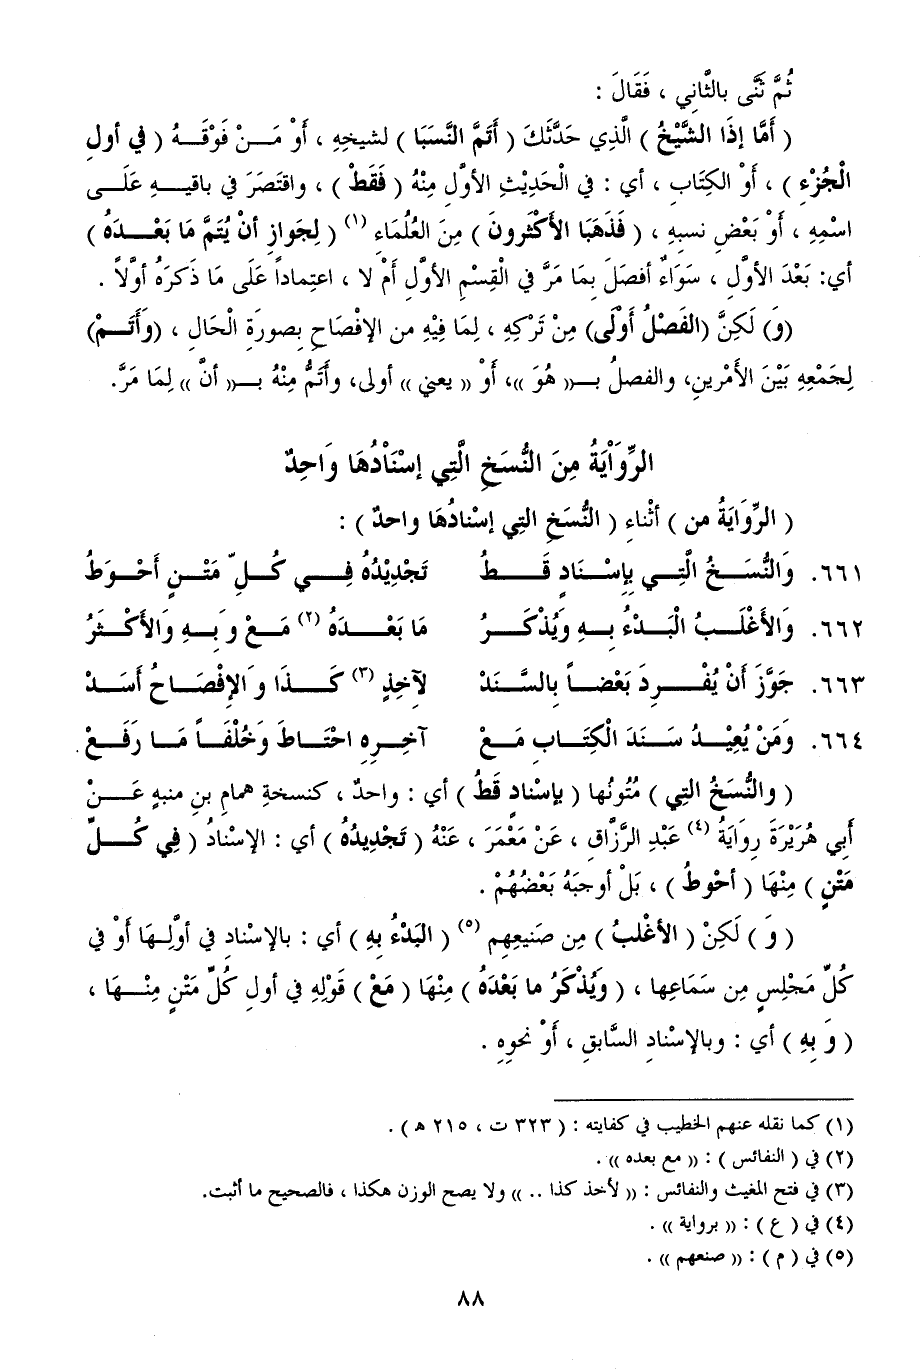 ثُمَّ ثَنَّى بالثَّانِي ، فَقَالَ :
( أَمَّا إذَا الشَّيْخُ ) الَّذِي حَدَّثَكَ ( أَتَمَّ النَّسَبَا ) لشيخِهِ ، أَوْ مَـنْ فَوْقَـهُ ( في أولِ
الْجُزْءِ ) ، أَوْ الكِتَابِ ، أي : في الْحَدِيْثِ الأوَّلِ مِنْهُ ( فَقَطْ ) ، واقتَصَرَ في باقيـهِ عَلَـى
اسْمِهِ ، أَوْ بَعْضِ نسبِهِ ، ( فَذَهَبَا الأَكْثَرونَ ) مِنَ العُلَمَاءِ (١) ( لِجوازِ أنْ يُتَمَّ مَا بَعْـدَهُ )
أي: بَعْدَ الأوَّلِ ، سَوَاءٌ أفصَلَ بِمَا مَرَّ في الْقِسْمِ الأوَّلِ أَمْ لا ، اعتِماداً عَلَى مَا ذَكرَهُ أوَّلاً .
(وَ) لَكِنَّ (الفَصْلُ أَوْلَى) مِنْ تَرْكِهِ ، لِمَا فِيْهِ من الإفْصَاحِ بِصورَةِ الْحَالِ ، (وَأَتَـمْ)
لِجَمْعِهِ بَيْنَ الأَمْرينِ، والفصلُ بـ« هُوَ »، أَوْ « يعني » أولى، وأتَمُّ مِنْهُ بـ« أنَّ » لِمَا مَرَّ.
الرِّوَاْيَةُ مِنَ النُّسَخِ الَّتِي إسْنَاْدُهَا وَاحِدٌ
( الروِّايَةُ من ) أثْناءِ ( النُّسَخِ التِي إسْنادُهَا واحدٌ ) :
٦٦١. وَالنُّسَـخُ الَّتِـي بِإسْـنَادٍ قَـطُ تَجْدِيْدُهُ فِـي كُـلِّ مَتْـنٍ أحْـوَطُ
٦٦٢. وَالأغْلَـبُ الْبَـدْءُ بِـهِ وَيُذْكَـرُ مَا بَعْـدَهُ (٢) مَـعْ وَبِـهِ وَالأَكْـثَرُ
٦٦٣. جَوَّزَ أَنْ يُفْـرِدَ بَعْضـاً بالسَّـنَدْ لآخِذٍ (٣) كَـذَا وَالإفْصَـاحُ أَسَـدْ
٦٦٤. وَمَنْ يُعِيْـدُ سَـنَدَ الْكِتَـابِ مَـعْ آخِـرِهِ احْتَـاطَ وَخُلْفَـاً مَـا رَفَعْ .
( والنُّسَخُ التِي ) مُتُونُها ( بإسْنادٍ قَطُ ) أي : واحدٌ ، كنسخةِ همامِ بنِ منبهٍ عَـنْ
أَبِي هُرَيْرَةَ رِوايَةُ (٤) عَبْدِ الرَّزَّاقِ ، عَنْ مَعْمَرَ ، عَنْهُ ( تَجْدِيدُهُ ) أي : الإسْنادُ ( فِي كُـلِّ
مَتْنٍ ) مِنْهَا ( أحْوطُ ) ، بَلْ أوجبَهُ بَعْضُهُمْ .
( وَ ) لَكِنْ ( الأغْلبُ ) مِن صَنيعِهِم (٥) ( البَدْءُ بِهِ ) أي : بالإسْنادِ في أوَّلِـهَا أَوْ في
كُلِّ مَجْلِسٍ مِن سَمَاعِها ، ( ويُذْكَرُ ما بَعْدَهُ ) مِنْهَا ( مَعْ ) قَوْلِهِ في أولِ كُلِّ مَتْنٍ مِنْـهَا ،
( وَ بِهِ ) أي : وبالإسْنادِ السَّابقِ ، أَوْ نحوِهِ .
(١) كما نقله عنهم الخطيب في كفايته : ( ٣٢٣ ت ، ٢١٥ ه‍ ) .
(٢) في ( النفائس ) : « مع بعده » .
(٣) في فتح المغيث والنفائس : « لأخذ كذا .. » ولا يصح الوزن هكذا ، فالصحيح ما أثبت.
(٤) في ( ع ) : « برواية » .
(٥) في ( م ) : « صنعهم » .
٨٨